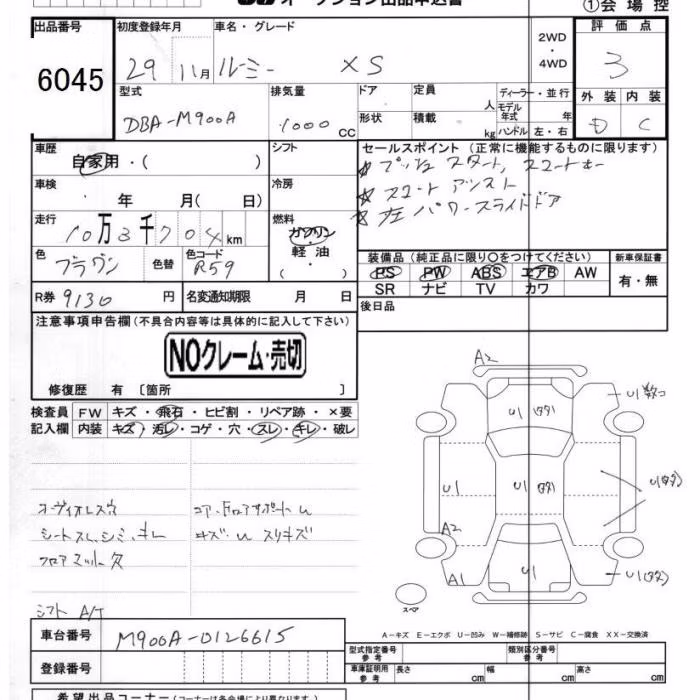 オークション出品申込書 ①会場控
出品番号 初度登録年月 車名・グレード 2WD・4WD 評価点
6045 29 11月 ルーミー XS 3
型式 排気量 ドア 定員 ディーラー・並行 外装 内装
DBA-M900A 1000 CC 人 モデル年式 年 D C
形状 積載 kg ハンドル 左・右
車歴 シフト セールスポイント (正常に機能するものに限ります)
自家用・( )
☆ プッシュスタート, スマートキー
車検 年 月( 日) 冷房
☆ スマートアシスト
☆ 左パワースライドドア
走行 10万3千704km 燃料 ガソリン・軽油・( )
色 ブラウン 色替 色コード R59
装備品 (純正品に限り〇をつけてください) 新車保証書
PS PW ABS エアB AW 有・無
SR ナビ TV カワ
R券 9130 円 名変通知期限 月 日 後日品
注意事項申告欄 (不具合内容等は具体的に記入して下さい)
NOクレーム・売切
修復歴 有 [箇所 ]
検査員 FW キズ・飛石・ヒビ割・リペア跡・×要
記入欄 内装 キズ・汚レ・コゲ・穴・スレ・キレ・破レ
オーディオレス
シートスレ,シミ,キレ
フロアマット欠
コアサポートU
キズ U スリキズ
シフト A/T
A2
U1(タタ) U1数コ
U1 U1(タタ) U1(タタ)
A2
A1 U1 U1(タタ)
スペア
A-キズ E-エクボ U-凹み W-補修跡 S-サビ C-腐食 XX-交換済
車台番号 M900A-0126615
型式指定番号 参考 類別区分番号 参考
登録番号
車庫証明用 参考 長さ cm 幅 cm 高さ cm
希望出品コーナー (コーナーは各会場により異なります。)